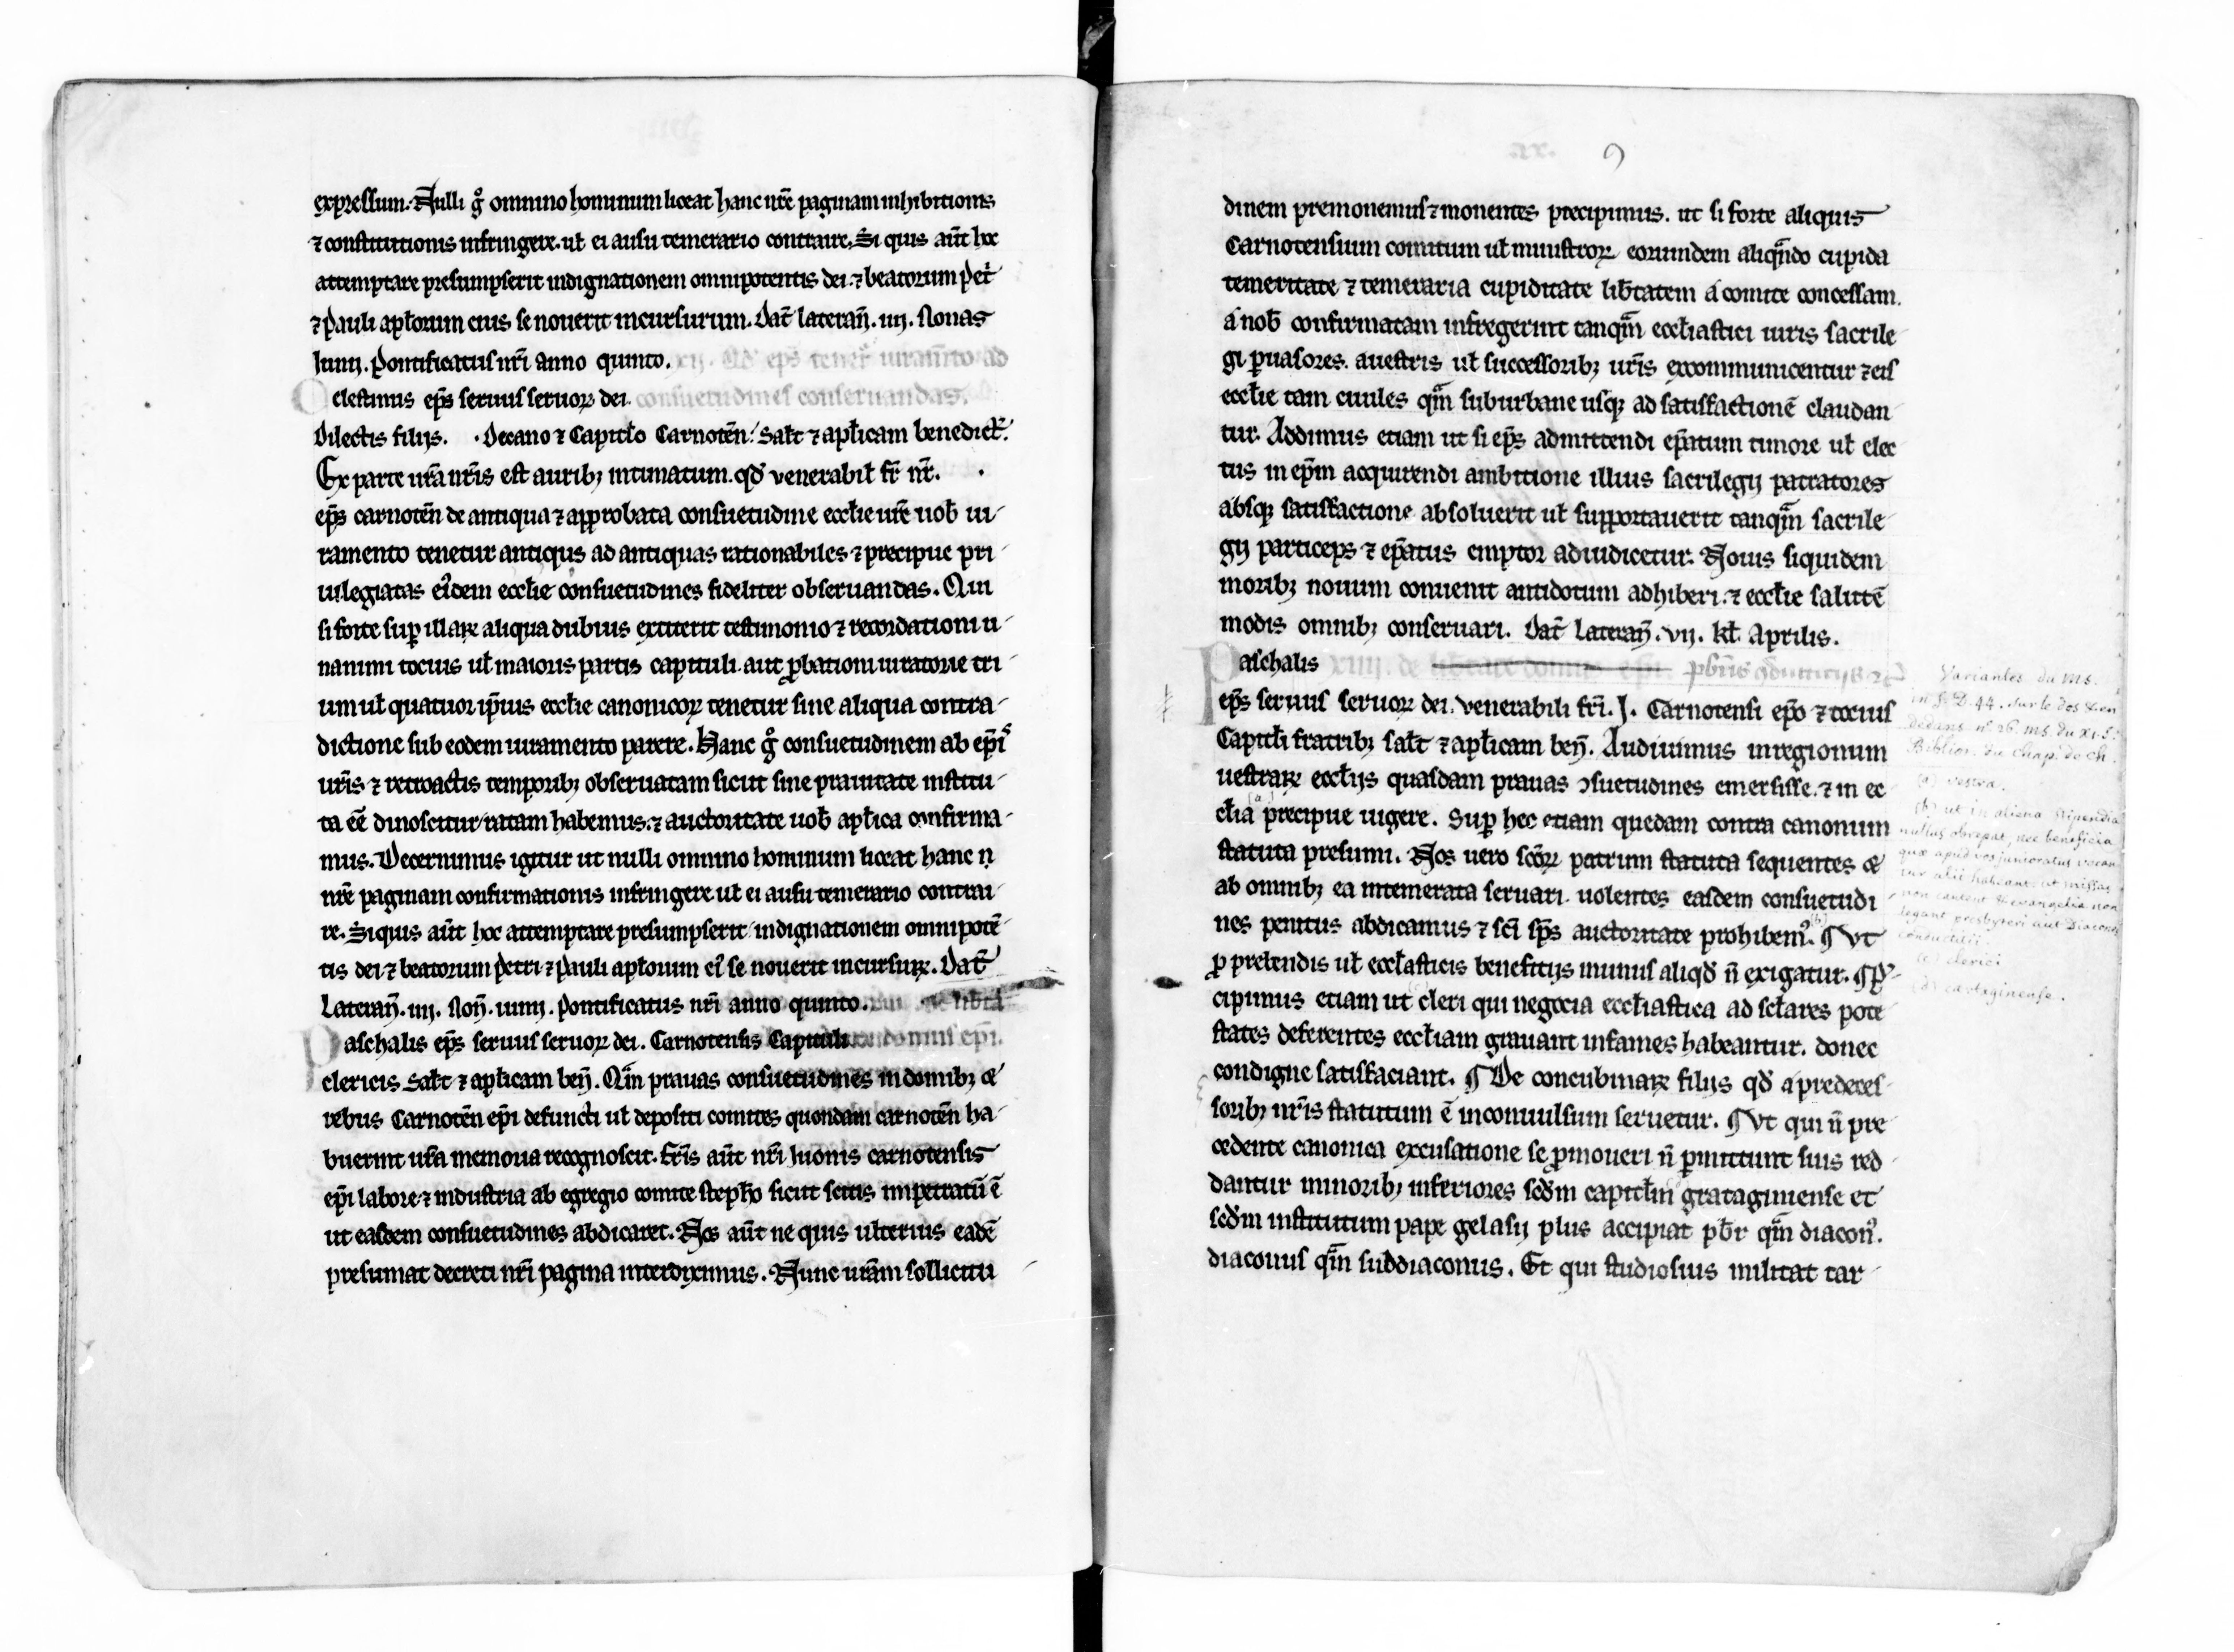 expressum. Nulli g̊ omnino hominum liceat hanc nr̄e paginam inhibitionis
⁊ constitutionis infringere. ut̄ ei ausu temerario contraire. Si quis aūt hoc
attemptare presumpserit indignationem omnipotentis dei. ⁊ beatorum pet̄
⁊ pauli apl̄orum eius se nouerit incursurum. Dat̄ laterān. iiij. Nonas
Iunij. Pontificatus nr̄i anno quinto. xij. Qd̄ ep̄s tenet̄ iuram̄to ad
Celestinus ep̄s seruus seruoꝝ dei. consuetudines conseruandas.
Dilectis filijs. . Decano ⁊ Capitl̄o Carnotēn. Sal̄t ⁊ apl̄icam benedict̄.
Ex parte ur̄a nr̄is est auribꝫ intimatum. qd̄ venerabil̄ fr̄ nr̄. .
ep̄s carnotēn de antiqua ⁊ approbata consuetudine eccl̄ie ur̄e uob̄ iu
ramento tenetur antiquis ad antiquas rationabiles ⁊ precipue pri
uilegiatas ei'dem eccl̄ie consuetudines fideliter obseruandas. Qui
si forte suꝑ illaꝝ aliqua dubius extiterit testimonio ⁊ recordationi u
nanimi tocius ut̄ maioris partis capituli. aut ꝓbationi iuratorie tri
um ut̄ quatuor ip̄ius eccl̄ie canonicoꝝ tenetur sine aliqua contra
dictione sub eodem iuramento parere. Hanc g̊ consuetudinem ab ep̄is
ur̄is ⁊ retroactis temporibꝫ obseruatam sicut sine prauitate institu
ta eē̄ dinoscitur ratam habemus. ⁊ auctoritate uob̄ apl̄ica confirma
mus. Decernimus igitur ut nulli omnino hominum liceat hanc ṇ
nr̄e paginam confirmationis infringere ut̄ ei ausu temerario contrai
re. Siquis aūt hoc attemptare presumpserit indignationem omnipotē
tis dei ⁊ beatorum petri ⁊ pauli apl̄orum ei' se nouerit incursuꝝ. Dat̄
Laterān. iiij. Nōn. iunij. Pontificatus nr̄i anno quinto. xiii. de lib̄ta
Paschalis ep̄s seruus seruoꝝ dei. Carnotensis Capituli te domus ep̄i.
clericis Sal̄t ⁊ apl̄icam bēn. Qm̄ prauas consuetudines in domibꝫ &
rebus Carnotēn ep̄i defuncti ut̄ depositi comites quondam carnotēn ha
buerint ur̄a memoria recognoscit. Fr̄is aūt nr̄i Iuonis carnotensis
ep̄i labore ⁊ industria ab egregio comite steph̄o sicut scitis impetratū ē
ut easdem consuetudines abdicaret. Nos aūt ne quis ulterius eadē
presumat decreti nr̄i pagina interdiximus. Nunc ur̄am sollicitu
9
dinem premonemus ⁊ monentes precipimus. ut si forte aliquis
Carnotensium comitum ut̄ ministroꝝ eorundem aliqn̄do cupida
temeritate ⁊ temeraria cupiditate lib̄tatem a comite concessam.
a nob̄ confirmatam infregerint tanqm̄ eccl̄iastici iuris sacrile
gi ꝑuasores. a uestris ut̄ successoribꝫ ur̄is excommunicentur ⁊ eis
eccl̄ie tam ciuiles qm̄ suburbane usqꝫ ad satisfactionē claudan
tur. Addimus etiam ut si ep̄s admittendi ep̄atum timore ut̄ elec
tus in ep̄m acquirendi ambitione illius sacrilegij patratores
absqꝫ satisfactione absoluerit ut̄ supportauerit tanqm̄ sacrile
gij particeps ⁊ ep̄atus emptor adiudicetur. Nouis siquidem
moribꝫ nouum conuenit antidotum adhiberi. ⁊ eccl̄ie salutē
modis omnibꝫ conseruari. Dat̄ Laterān. vij. kl̄. Aprilis.
Paschalis xiiij. de lib̄tate domus ep̄i. pb̄ris ꝯductitijs
ep̄s seruus seruoꝝ dei. venerabili fr̄i. J. Carnotensi ep̄o ⁊ tocius
Capitl̄i fratribꝫ sal̄t ⁊ apl̄icam bēn. Audiuimus in regionum
uestraꝝ eccl̄ijs quasdam prauas ꝯsuetudines emersisse. ⁊ in ec
cl̄ia (a) precipue uigere. Suꝑ hec etiam quedam contra canonum
statuta presumi. Nos uero sc̄oꝝ patrum statuta sequentes &
ab omnibꝫ ea intemerata seruari uolentes easdem consuetudi
nes penitus abdicamus ⁊ sc̄i sp̄s auctoritate prohibem'. (b) ¶ Vt
ꝓ prebendis ut̄ eccl̄asticis beneficijs munus aliqd̄ n̄ exigatur. ¶ P̄
cipimus etiam ut cleri qui negocia eccl̄iastica ad sc̄lares pote
states deferentes eccl̄iam grauant infames habeantur. donec
condigne satisfaciant. ¶ De concubinaꝝ filijs qd̄ a predeces
soribꝫ nr̄is statutum ē inconuulsum seruetur. ¶ Vt qui n̄ pre
cedente canonica excusatione se ꝓmoueri n̄ ꝑmittunt suis red
dantur minoribꝫ inferiores scd̄m capitl̄m grataginiense et
scd̄m institutum pape gelasij plus accipiat pb̄r qm̄ diacon'.
diaconus qm̄ subdiaconus. Et qui studiosius militat tar
Variantes du ms.
in fº D. 44. sur le dos &en
dedans nº 26. ms. du XI. S.
Biblioth. du Chap. de Ch.
(a) vestra.
(b) ut in aliena stipendia
nullus obrepat, nec beneficia
quæ apud vos junioratus vocan
tur alii habeant. ut missas
non cantent & evangelia non
legant presbyteri aut Diaconi
conductitii.
(c) clerici
(d) cartaginense.